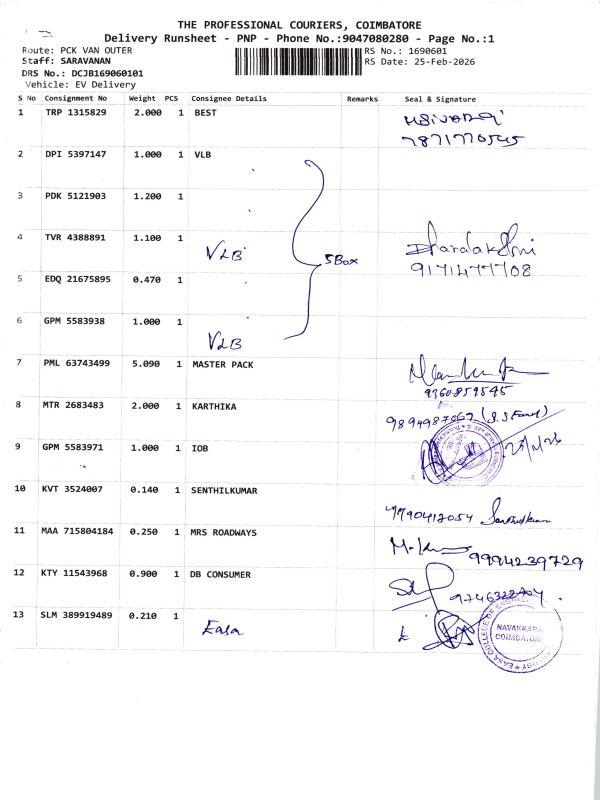 THE PROFESSIONAL COURIERS, COIMBATORE
Delivery Runsheet - PNP - Phone No.:9047080280 - Page No.:1
Route: PCK VAN OUTER
RS No.: 1690601
Staff: SARAVANAN
RS Date: 25-Feb-2026
DRS No.: DCJB169060101
Vehicle: EV Delivery
S No Consignment No Weight PCS Consignee Details Remarks Seal & Signature
1 TRP 1315829 2.000 1 BEST
7871770545
2 DPI 5397147 1.000 1 VLB
3 PDK 5121903 1.200 1
4 TVR 4388891 1.100 1 VLB
5 Box
9171477708
5 EDQ 21675895 0.470 1
6 GPM 5583938 1.000 1 VLB
7 PML 63743499 5.090 1 MASTER PACK
9360859545
8 MTR 2683483 2.000 1 KARTHIKA
9 GPM 5583971 1.000 1 IOB
10 KVT 3524007 0.140 1 SENTHILKUMAR
11 MAA 715804184 0.250 1 MRS ROADWAYS
9994239729
12 KTY 11543968 0.900 1 DB CONSUMER
13 SLM 389919489 0.210 1 Easa
NAVAKKARA
COIMBATORE